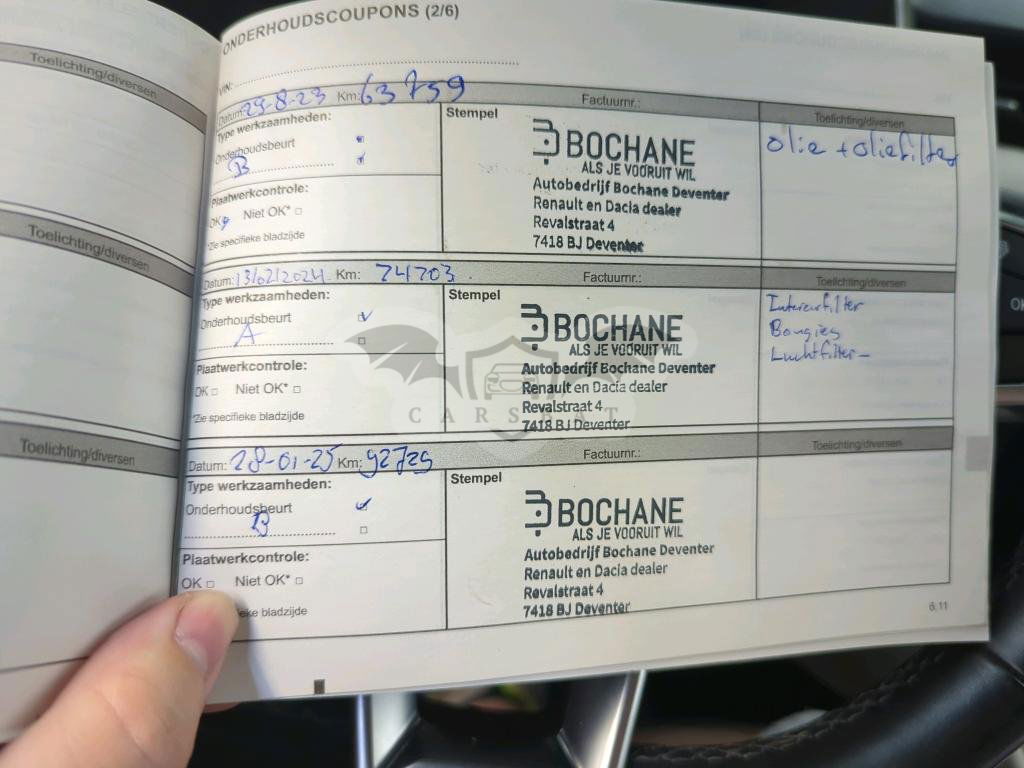 ONDERHOUDSCOUPONS (2/6)
VIN:
Toelichting/diversen
Datum: 29-8-23 Km: 63759
Factuurnr.:
Type werkzaamheden:
Onderhoudsbeurt
B
Plaatwerkcontrole:
OK Niet OK*
*Zie specifieke bladzijde
Stempel
BOCHANE
ALS JE VOORUIT WIL
Autobedrijf Bochane Deventer
Renault en Dacia dealer
Revalstraat 4
7418 BJ Deventer
Toelichting/diversen
olie + oliefilter
Toelichting/diversen
Datum: 13/02/2024 Km: 74703
Factuurnr.:
Type werkzaamheden:
Onderhoudsbeurt
A
Plaatwerkcontrole:
OK Niet OK*
*Zie specifieke bladzijde
Stempel
BOCHANE
ALS JE VOORUIT WIL
Autobedrijf Bochane Deventer
Renault en Dacia dealer
Revalstraat 4
7418 BJ Deventer
Toelichting/diversen
Interieurfilter
Bougies
Luchtfilter
CARSBAT
Toelichting/diversen
Datum: 28-01-25 Km: 92729
Factuurnr.:
Type werkzaamheden:
Onderhoudsbeurt
B
Plaatwerkcontrole:
OK Niet OK*
bladzijde
Stempel
BOCHANE
ALS JE VOORUIT WIL
Autobedrijf Bochane Deventer
Renault en Dacia dealer
Revalstraat 4
7418 BJ Deventer
Toelichting/diversen
6.11